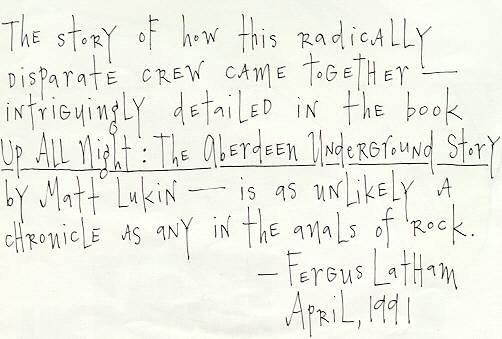 The story of how this radically
disparate crew came together —
intriguingly detailed in the book
Up All Night: The Aberdeen Underground Story
by Matt Lukin — is as unlikely a
chronicle as any in the anals of rock.
— Fergus Latham
April, 1991